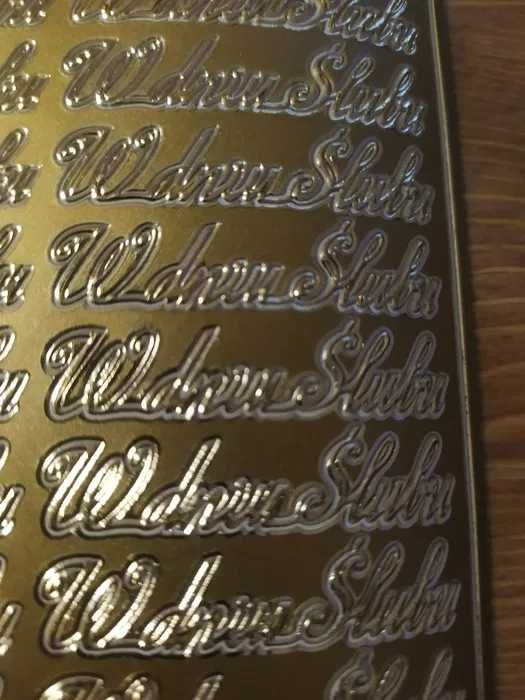 W dniu Ślubu
W dniu Ślubu
W dniu Ślubu
W dniu Ślubu
W dniu Ślubu
W dniu Ślubu
W dniu Ślubu